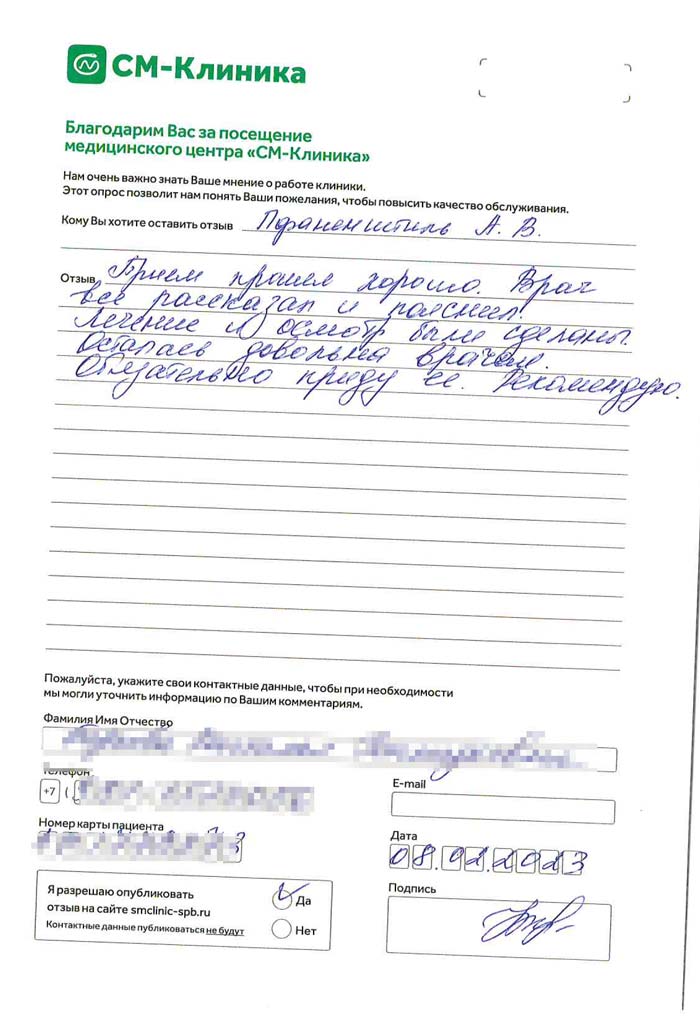 СМ-Клиника
Благодарим Вас за посещение
медицинского центра «СМ-Клиника»
Нам очень важно знать Ваше мнение о работе клиники.
Этот опрос позволит нам понять Ваши пожелания, чтобы повысить качество обслуживания.
Кому Вы хотите оставить отзыв Пфаненштиль А. В.
Отзыв Прием прошел хорошо. Врач
все рассказал и пояснил.
Лечение и осмотр были сделаны.
Осталась довольна врачем.
Обязательно приду еще. Рекомендую.
Пожалуйста, укажите свои контактные данные, чтобы при необходимости
мы могли уточнить информацию по Вашим комментариям.
Фамилия Имя Отчество
Телефон
+7 (
E-mail
Номер карты пациента
Дата
08.02.2023
Я разрешаю опубликовать
отзыв на сайте smclinic-spb.ru
Контактные данные публиковаться не будут
Да
Нет
Подпись